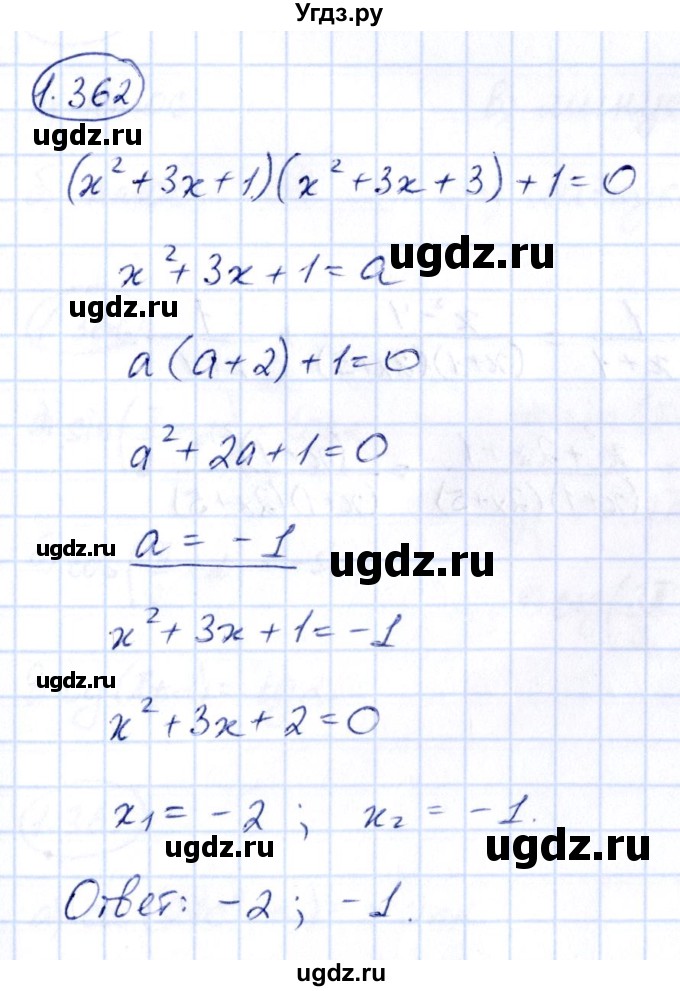 Угдз.ру
1.362
ugdz.ru
(x² + 3x + 1)(x² + 3x + 3) + 1 = 0
x² + 3x + 1 = a
ugdz.ru
ugdz.ru
a(a + 2) + 1 = 0
a² + 2a + 1 = 0
a = -1
ugdz.ru
ugdz.ru
x² + 3x + 1 = -1
ugdz.ru
x² + 3x + 2 = 0
x₁ = -2; x₂ = -1.
ugdz.ru
ugdz.ru
Ответ: -2; -1.
ugdz.ru